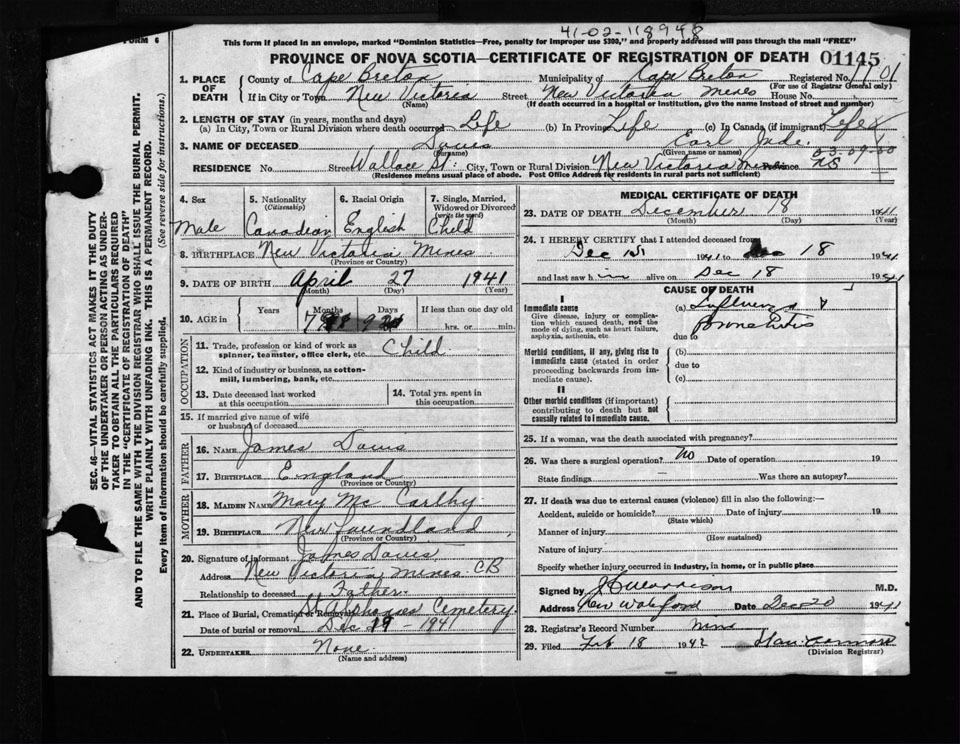 41-02-118948
FORM 6
This form if placed in an envelope, marked "Dominion Statistics—Free, penalty for improper use $300," and properly addressed will pass through the mail "FREE"
PROVINCE OF NOVA SCOTIA—CERTIFICATE OF REGISTRATION OF DEATH 01145
1. PLACE OF DEATH County of Cape Breton Municipality of Cape Breton Registered No.
(For use of Registrar General only)
If in City or Town New Victoria Street New Victoria Mines House No.
(Name) (If death occurred in a hospital or institution, give the name instead of street and number)
2. LENGTH OF STAY (in years, months and days)
(a) In City, Town or Rural Division where death occurred Life (b) In Province Life (c) In Canada (if immigrant) Life
3. NAME OF DECEASED Davis Earl Jude
(Surname) (Given name or names) 03-09-00
RESIDENCE No. Street Wallace St. City, Town or Rural Division New Victoria Mines Province NS
(Residence means usual place of abode. Post Office Address for residents in rural parts not sufficient)
4. Sex 5. Nationality (Citizenship) 6. Racial Origin 7. Single, Married, Widowed or Divorced (write the word)
Male Canadian English Child
8. BIRTHPLACE New Victoria Mines
(Province or Country)
9. DATE OF BIRTH April 27 1941
(Month) (Day) (Year)
10. AGE in Years Months Days If less than one day old
7 hrs. or min.
OCCUPATION
11. Trade, profession or kind of work as spinner, teamster, office clerk, etc. Child
12. Kind of industry or business, as cotton-mill, lumbering, bank, etc.
13. Date deceased last worked at this occupation 14. Total yrs. spent in this occupation
15. If married give name of wife or husband of deceased
FATHER
16. NAME James Davis
17. BIRTHPLACE England
(Province or Country)
MOTHER
18. MAIDEN NAME Mary Mc Carthy
19. BIRTHPLACE Newfoundland
(Province or Country)
20. Signature of informant James Davis
Address New Victoria Mines CB
Relationship to deceased Father
21. Place of Burial, Cremation or Removal Cemetery
Date of burial or removal Dec 19 - 1941
22. UNDERTAKER None
(Name and address)
MEDICAL CERTIFICATE OF DEATH
23. DATE OF DEATH December 18 1941
(Month) (Day) (Year)
24. I HEREBY CERTIFY that I attended deceased from
Dec 1941 to Dec 18 1941
and last saw him alive on Dec 18 1941
CAUSE OF DEATH
I
Immediate cause
Give disease, injury or complication which caused death, not the mode of dying, such as heart failure, asphyxia, asthenia, etc.
(a) Influenza
Bronchitis
due to
Morbid conditions, if any, giving rise to immediate cause (stated in order proceeding backwards from immediate cause).
(b)
due to
(c)
II
Other morbid conditions (if important) contributing to death but not causally related to immediate cause.
25. If a woman, was the death associated with pregnancy?
26. Was there a surgical operation? No Date of operation 19
State findings Was there an autopsy?
27. If death was due to external causes (violence) fill in also the following:—
Accident, suicide or homicide? Date of injury 19
(State which)
Manner of injury
(How sustained)
Nature of injury
Specify whether injury occurred in industry, in home, or in public place
Signed by M.D.
Address New Waterford Date Dec 20 1941
28. Registrar's Record Number
29. Filed Feb 18 1942
(Division Registrar)
SEC. 46—VITAL STATISTICS ACT MAKES IT THE DUTY
OF THE UNDERTAKER OR PERSON ACTING AS UNDER-
TAKER TO OBTAIN ALL THE PARTICULARS REQUIRED
IN THE "CERTIFICATE OF REGISTRATION OF DEATH"
AND TO FILE THE SAME WITH THE DIVISION REGISTRAR WHO SHALL ISSUE THE BURIAL PERMIT.
WRITE PLAINLY WITH UNFADING INK. THIS IS A PERMANENT RECORD.
Every item of information should be carefully supplied. (See reverse side for instructions.)